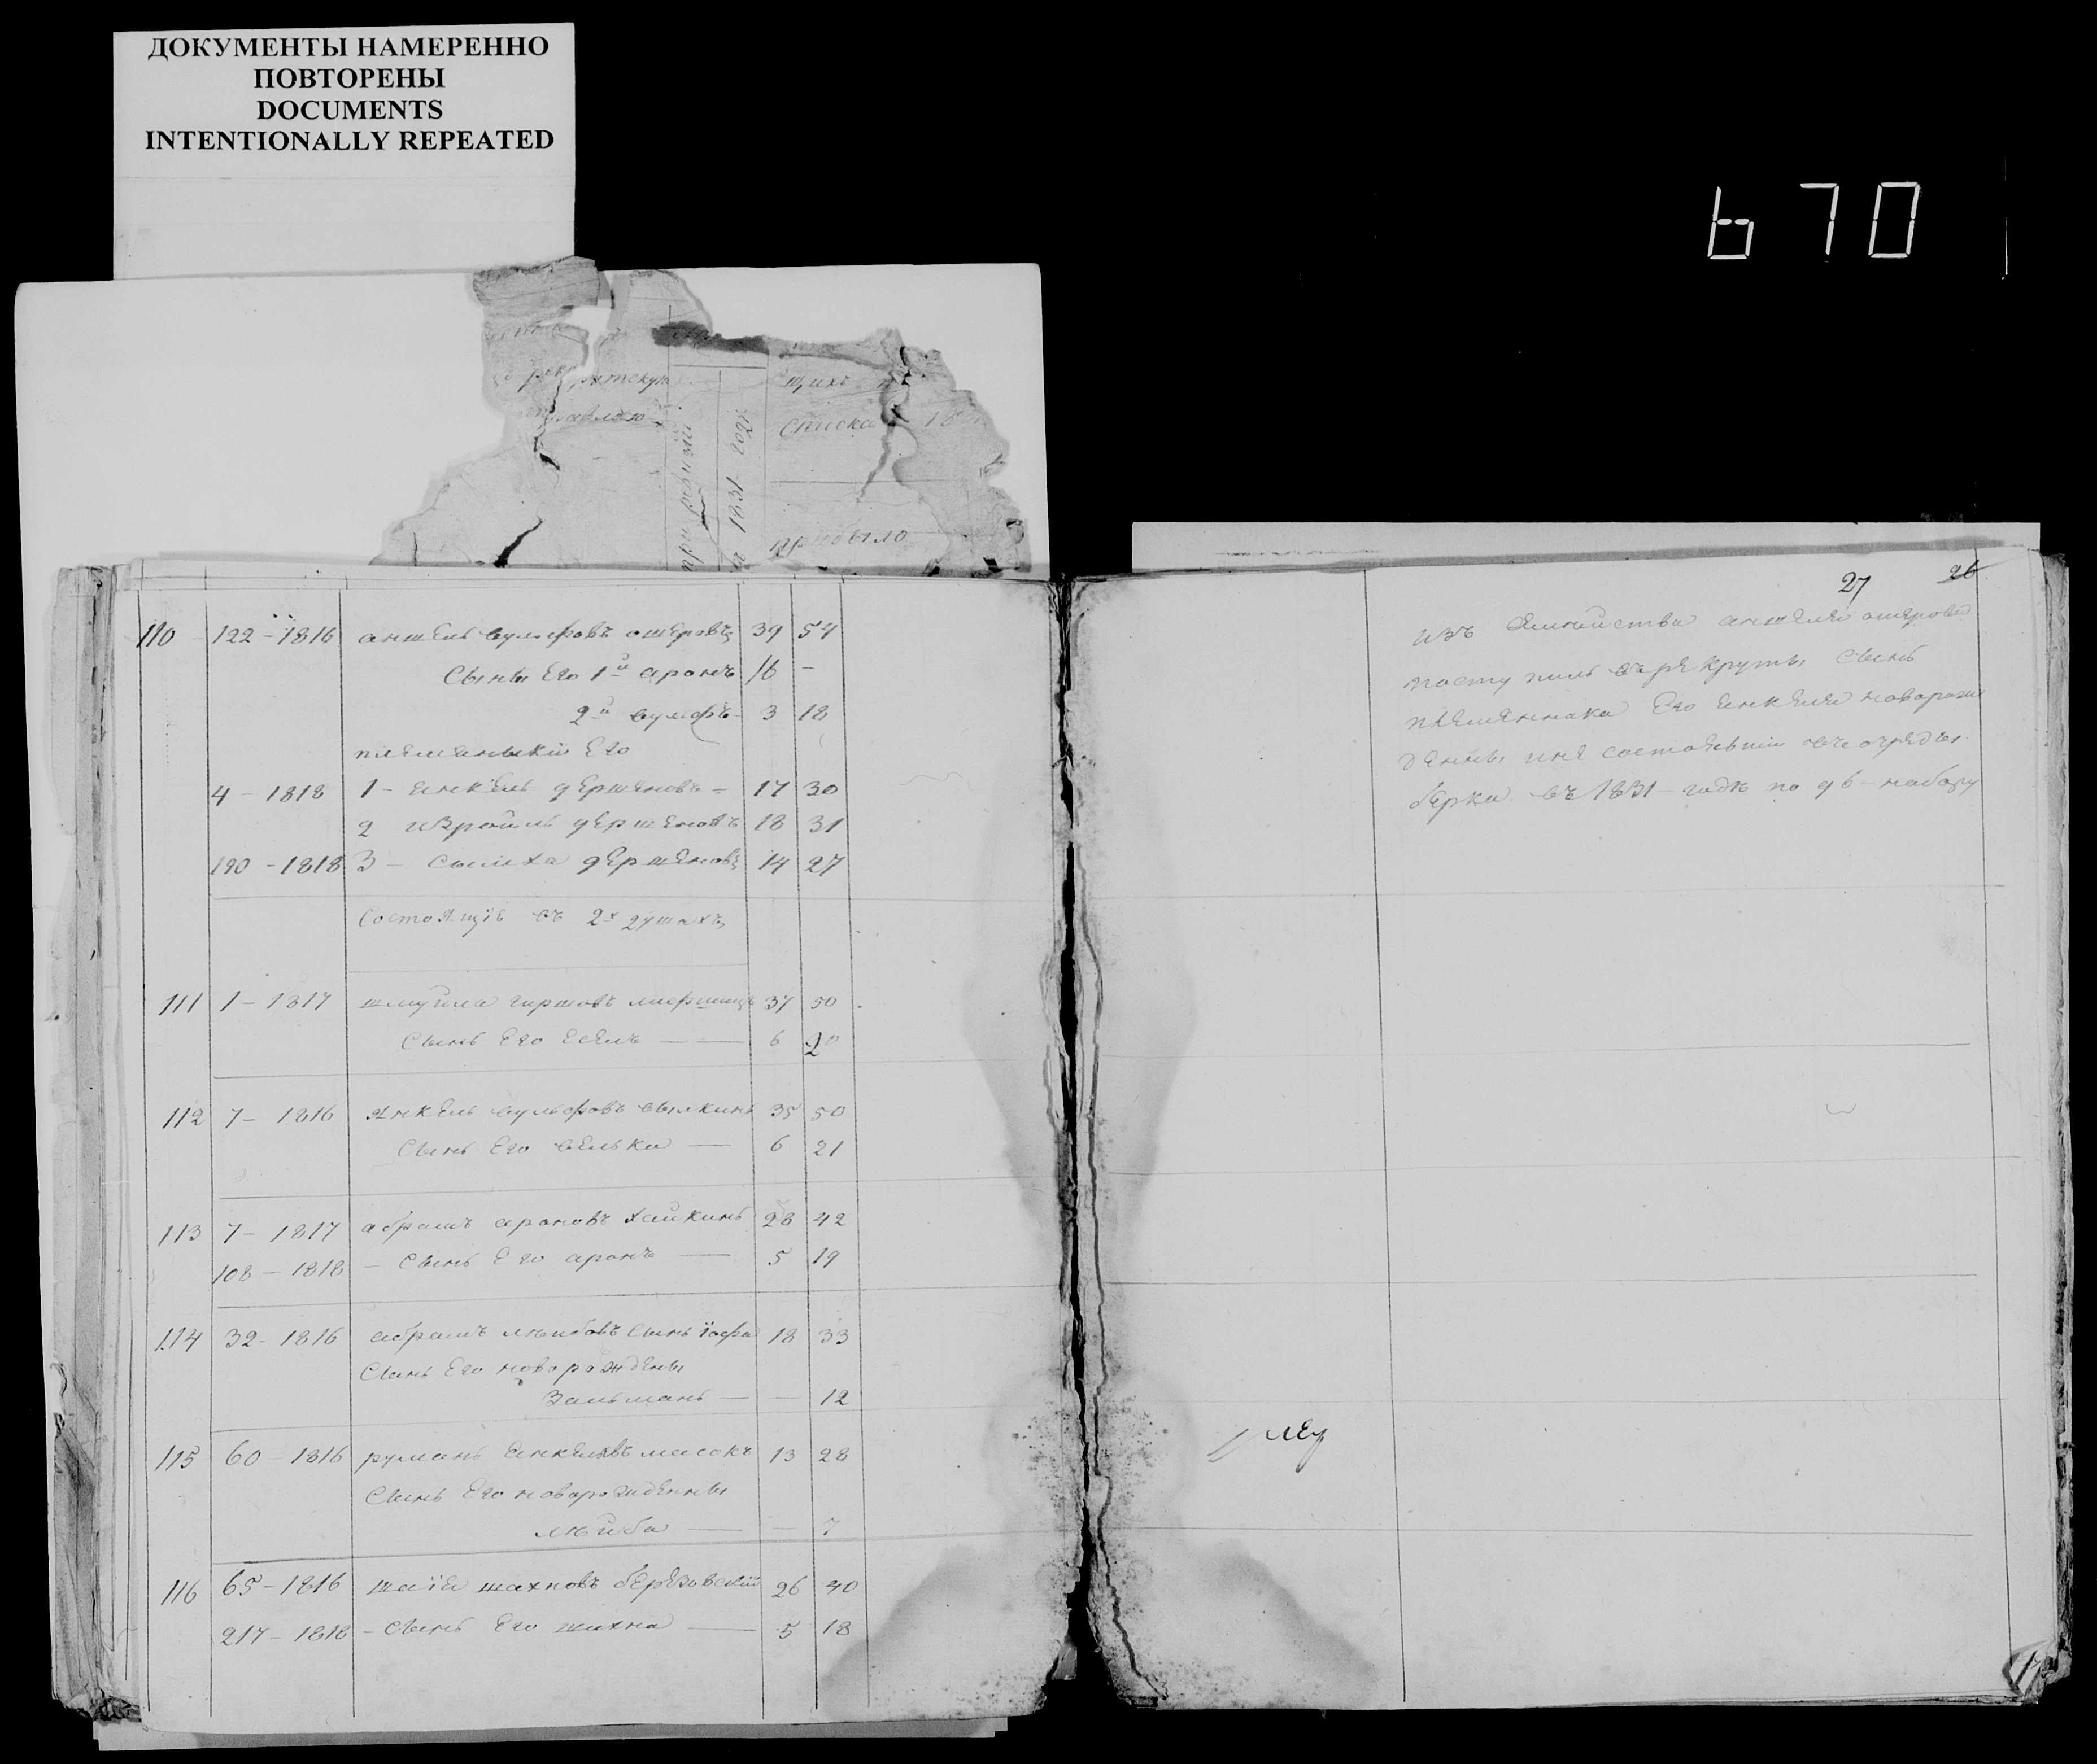 ДОКУМЕНТЫ НАМЕРЕННО
ПОВТОРЕНЫ
DOCUMENTS
INTENTIONALLY REPEATED
670
щихъ
списка 18
при ревизіи
1831 годъ
прибыло
110 122-1816 аншель вульфовъ ошеровъ 39 54
Сыны Его 1й аронъ 16 -
2й вульфъ - 3 18
племяныки Его
4 - 1818 1 - янкель гершеновъ - 17 30
2 израиль гершеновъ 18 31
190 - 1818 3 - сымха гершеновъ 14 27
состоящіе въ 2х душахъ
111 1 - 1817 шмуила гиршовъ лифшицъ 37 50
Сынъ Его Есель — 6 20
112 7 - 1816 Янкель вульфовъ вылкинъ 35 50
Сынъ Его велька — 6 21
113 7 - 1817 абрамъ ароновъ хайкинъ 28 42
108 - 1818 - Сынъ Его аронъ — 5 19
114 32 - 1816 абрамъ лейбовъ сынъ іофа 18 33
Сынъ Его новорожденны
Зальманъ — — 12
115 60 - 1816 румань янкелевъ масокъ 13 28
Сынъ Его новорожденны
лейба — — 7
116 65 - 1816 шаія шахновъ березовскій 26 40
217 - 1818 - Сынъ Его шахна — 5 18
27 26
изъ семийства аншеля ошерова
поступилъ въ рекруты сынъ
племянника Его янкеля новорож
денны и не состоявши въ очреды
берка въ 1831 годе по 96 набору
17